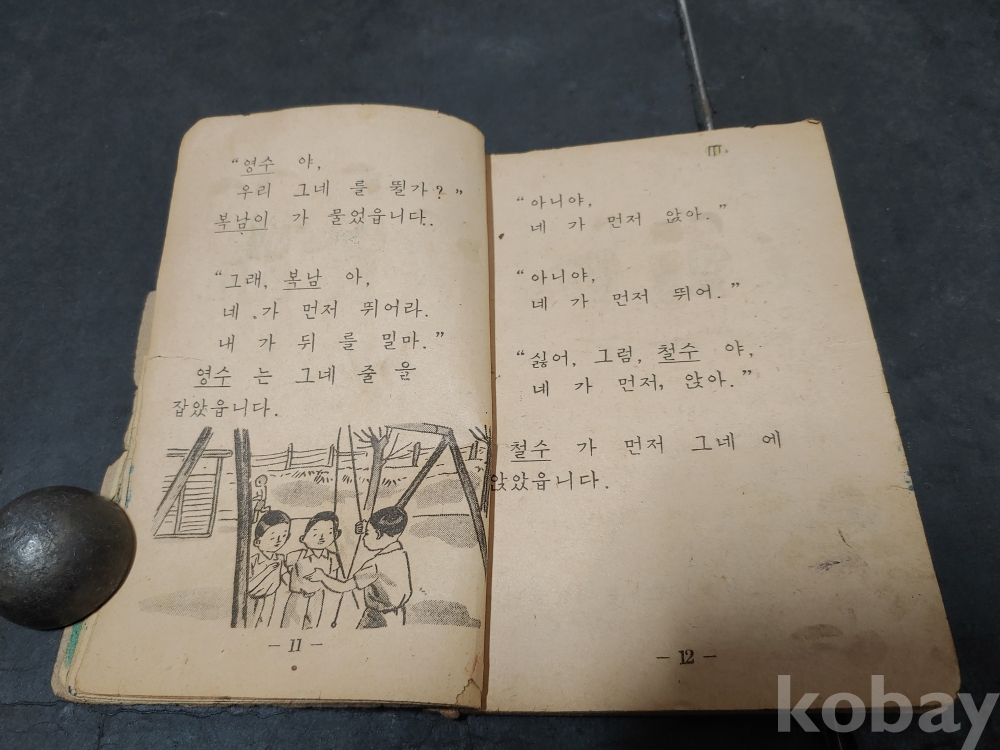 “영수 야,
우리 그네 를 뛸가?”
복남이 가 물었읍니다.
“그래, 복남 아,
네 가 먼저 뛰어라.
내 가 뒤 를 밀마.”
영수 는 그네 줄 을
잡았읍니다.
— 11 —
“아니야,
네 가 먼저 앉아.”
“아니야,
네 가 먼저 뛰어.”
“싫어, 그럼, 철수 야,
네 가 먼저, 앉아.”
철수 가 먼저 그네 에
앉았읍니다.
— 12 —
kobay